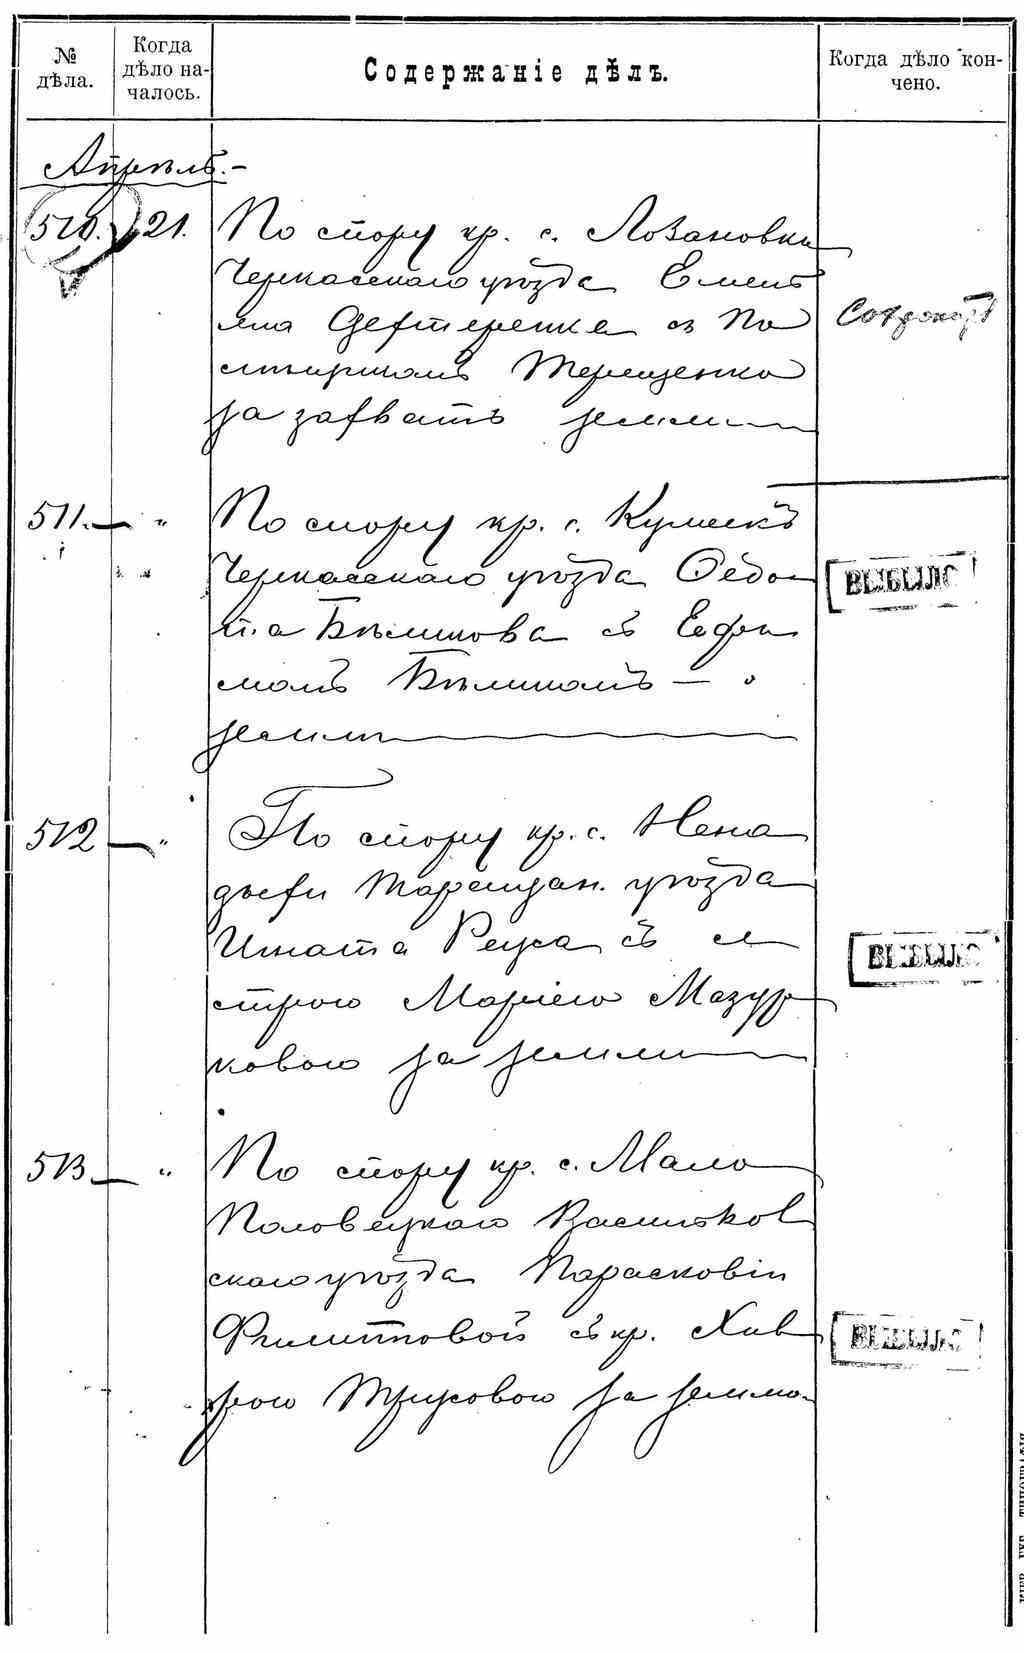 № дѣла.
Когда дѣло началось.
Содержаніе дѣлъ.
Когда дѣло кончено.
Апрѣль.-
510. 21. По спору кр. с. Лозановки
Черкасскаго уѣзда Емель
яна Дегтеренка съ По
Терещенко
за захватъ земли
511. — " По спору кр. с. Кумеекъ
Черкасскаго уѣзда Ѳедо
та Бѣликова съ Ефи
момъ Бѣликомъ —
земли
ВЫБЫЛО
512 — " По спору кр. с. Нена
дыхи Таращан. уѣзда
Игната Реуса съ се
строю Маріею Мазур
ковою за земли
ВЫБЫЛО
513 — " По спору кр. с. Мало
Половецкаго Васильков
скаго уѣзда Парасковіи
Филипповой съ кр. Хив
рою за землю
ВЫБЫЛО